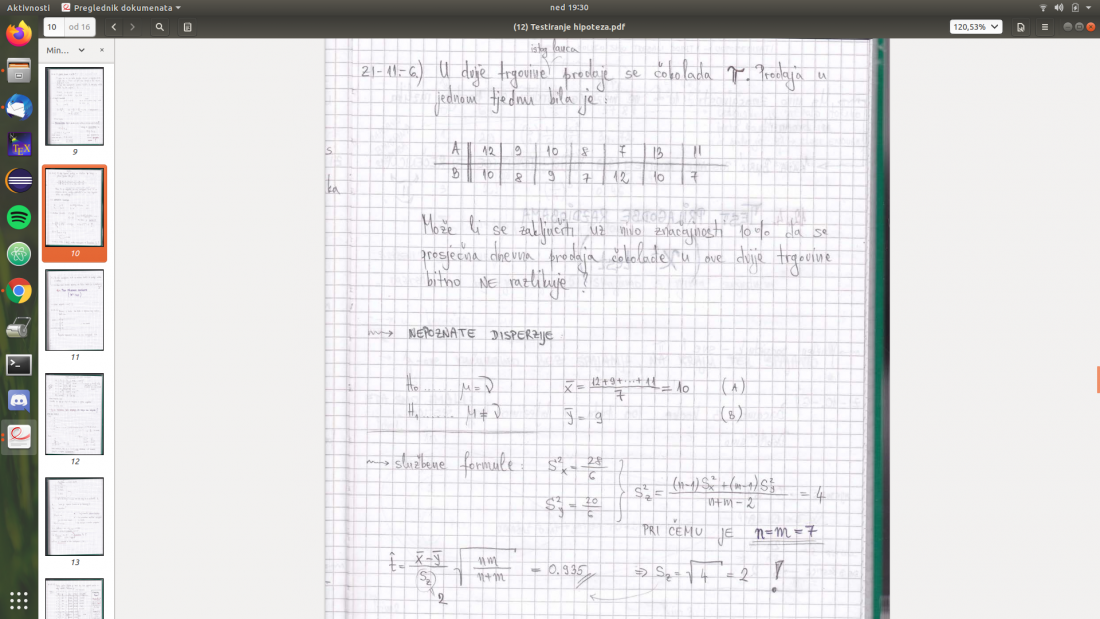 Aktivnosti
Preglednik dokumenata
ned 19:30
10
od 16
(12) Testiranje hipoteza.pdf
120,53%
Min...
9
10
11
12
13
istog lanca
21-11.-6.) U dvije trgovine prodaje se čokolada T. Prodaja u
jednom tjednu bila je:
s
A 12 9 10 8 7 13 11
B 10 8 9 7 12 10 7
ka
Može li se zaključiti uz nivo značajnosti 10% da se
prosječna dnevna prodaja čokolade u ove dvije trgovine
bitno NE razlikuje?
⇝ NEPOZNATE DISPERZIJE:
H₀ ...... μ = ν x̄ = (12+9+...+11)/7 = 10 (A)
H₁ ...... μ ≠ ν ȳ = 9 (B)
⇝ službene formule: S²x = 28/6
S²y = 20/6
S²z = ((n-1)S²x + (m-1)S²y)/(n+m-2) = 4
PRI ČEMU JE n=m=7
t̂ = (x̄-ȳ)/Sz √(nm/(n+m)) = 0.935 ⇒ Sz = √4 = 2 !
2